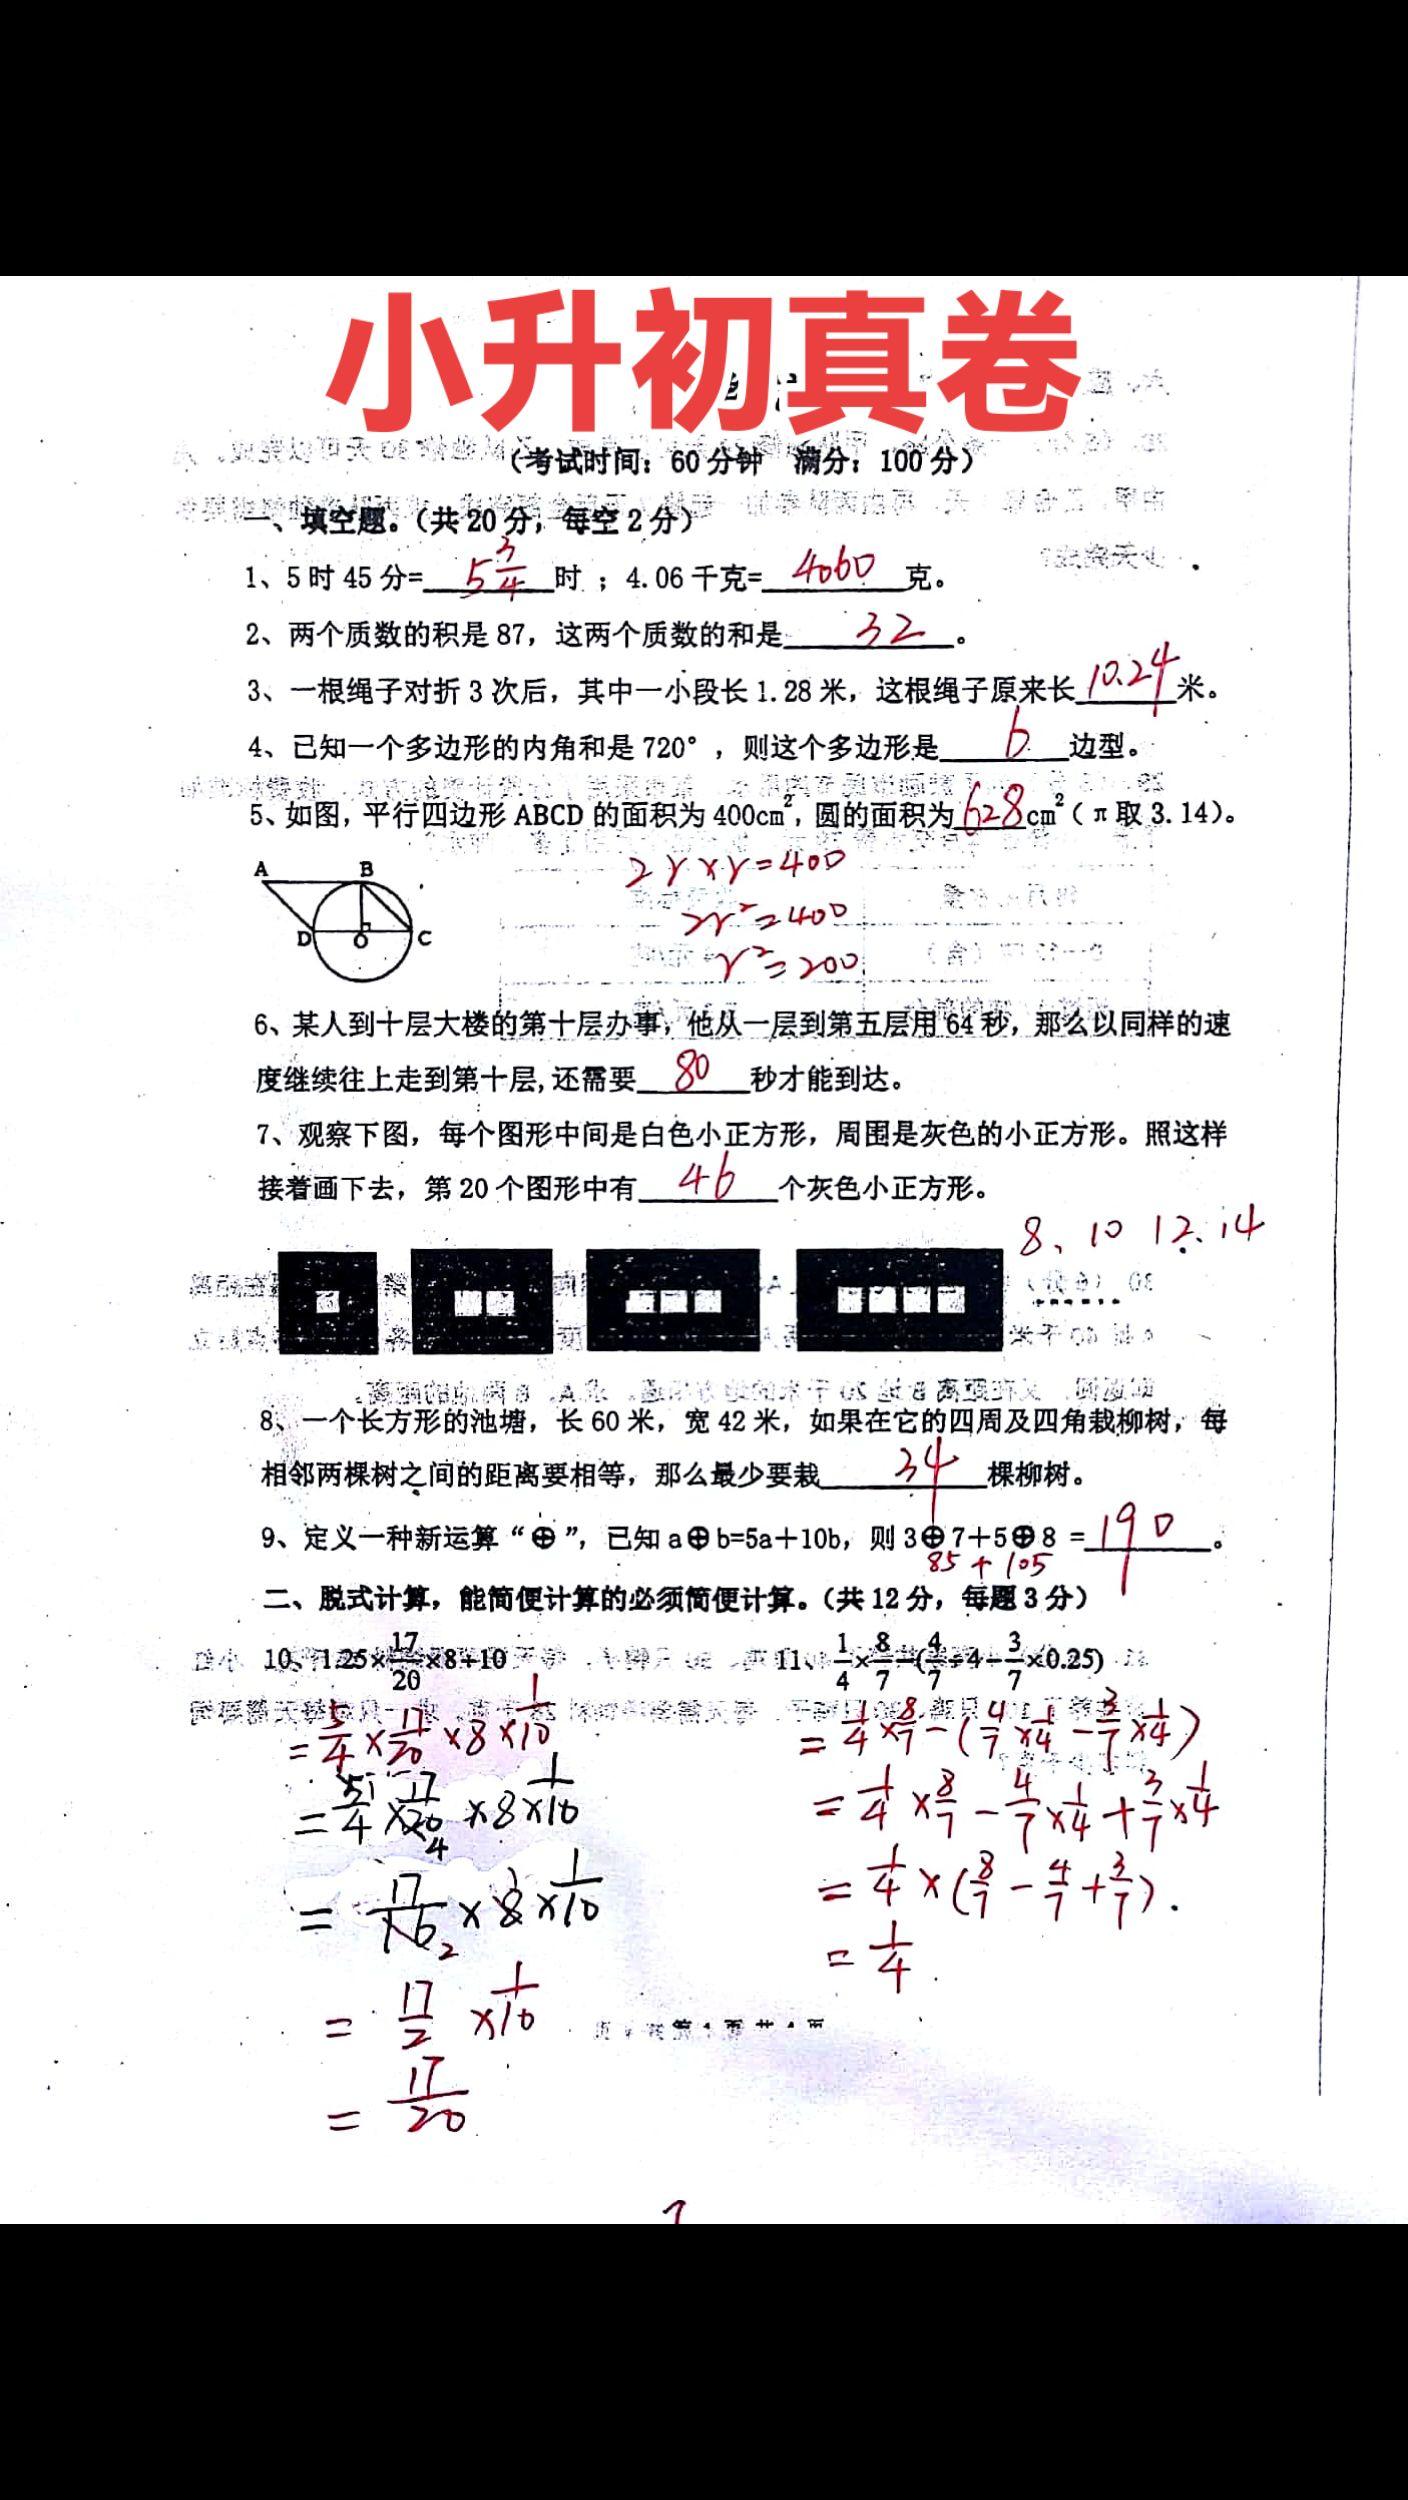 小升初真卷
（考试时间：60分钟 满分：100分）
一、填空题。（共20分，每空2分）
1、5时45分=5 3/4时；4.06千克=4060克。
2、两个质数的积是87，这两个质数的和是32。
3、一根绳子对折3次后，其中一小段长1.28米，这根绳子原来长10.24米。
4、已知一个多边形的内角和是720°，则这个多边形是6边型。
5、如图，平行四边形ABCD的面积为400cm²，圆的面积为628cm²（π取3.14）。
A B
D O C
2r×r=400
2r²=400
r²=200
6、某人到十层大楼的第十层办事，他从一层到第五层用64秒，那么以同样的速
度继续往上走到第十层,还需要80秒才能到达。
7、观察下图，每个图形中间是白色小正方形，周围是灰色的小正方形。照这样
接着画下去，第20个图形中有46个灰色小正方形。
8、10 12、14
……
8、一个长方形的池塘，长60米，宽42米，如果在它的四周及四角栽柳树，每
相邻两棵树之间的距离要相等，那么最少要栽34棵柳树。
9、定义一种新运算“⊕”，已知a⊕b=5a＋10b，则3⊕7＋5⊕8=190。
85+105
二、脱式计算，能简便计算的必须简便计算。（共12分，每题3分）
10、1.25×17/20×8÷10
=5/4×17/20×8×1/10
=5/4×17/20×8×1/10
=17/16×8×1/10
=17/2×1/10
=17/20
11、1/4×8/7−(4/7÷4−3/7×0.25)
=1/4×8/7−(4/7×1/4−3/7×1/4)
=1/4×8/7−4/7×1/4+3/7×1/4
=1/4×(8/7−4/7+3/7).
=1/4